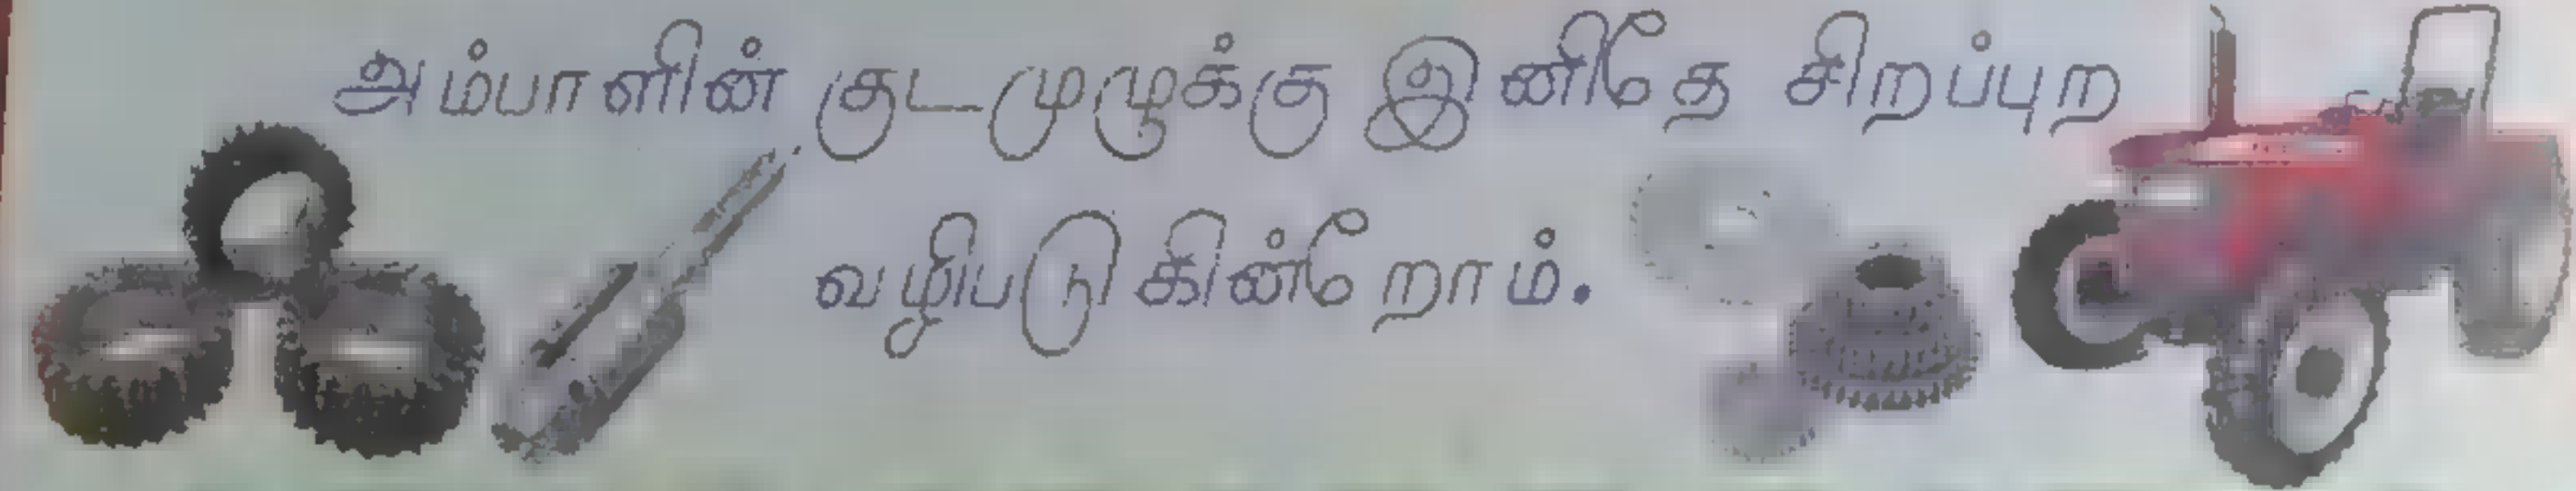 அம்பாளின் குடமுழுக்கு இனிதே சிறப்புற
வழிபடுகின்றோம்.